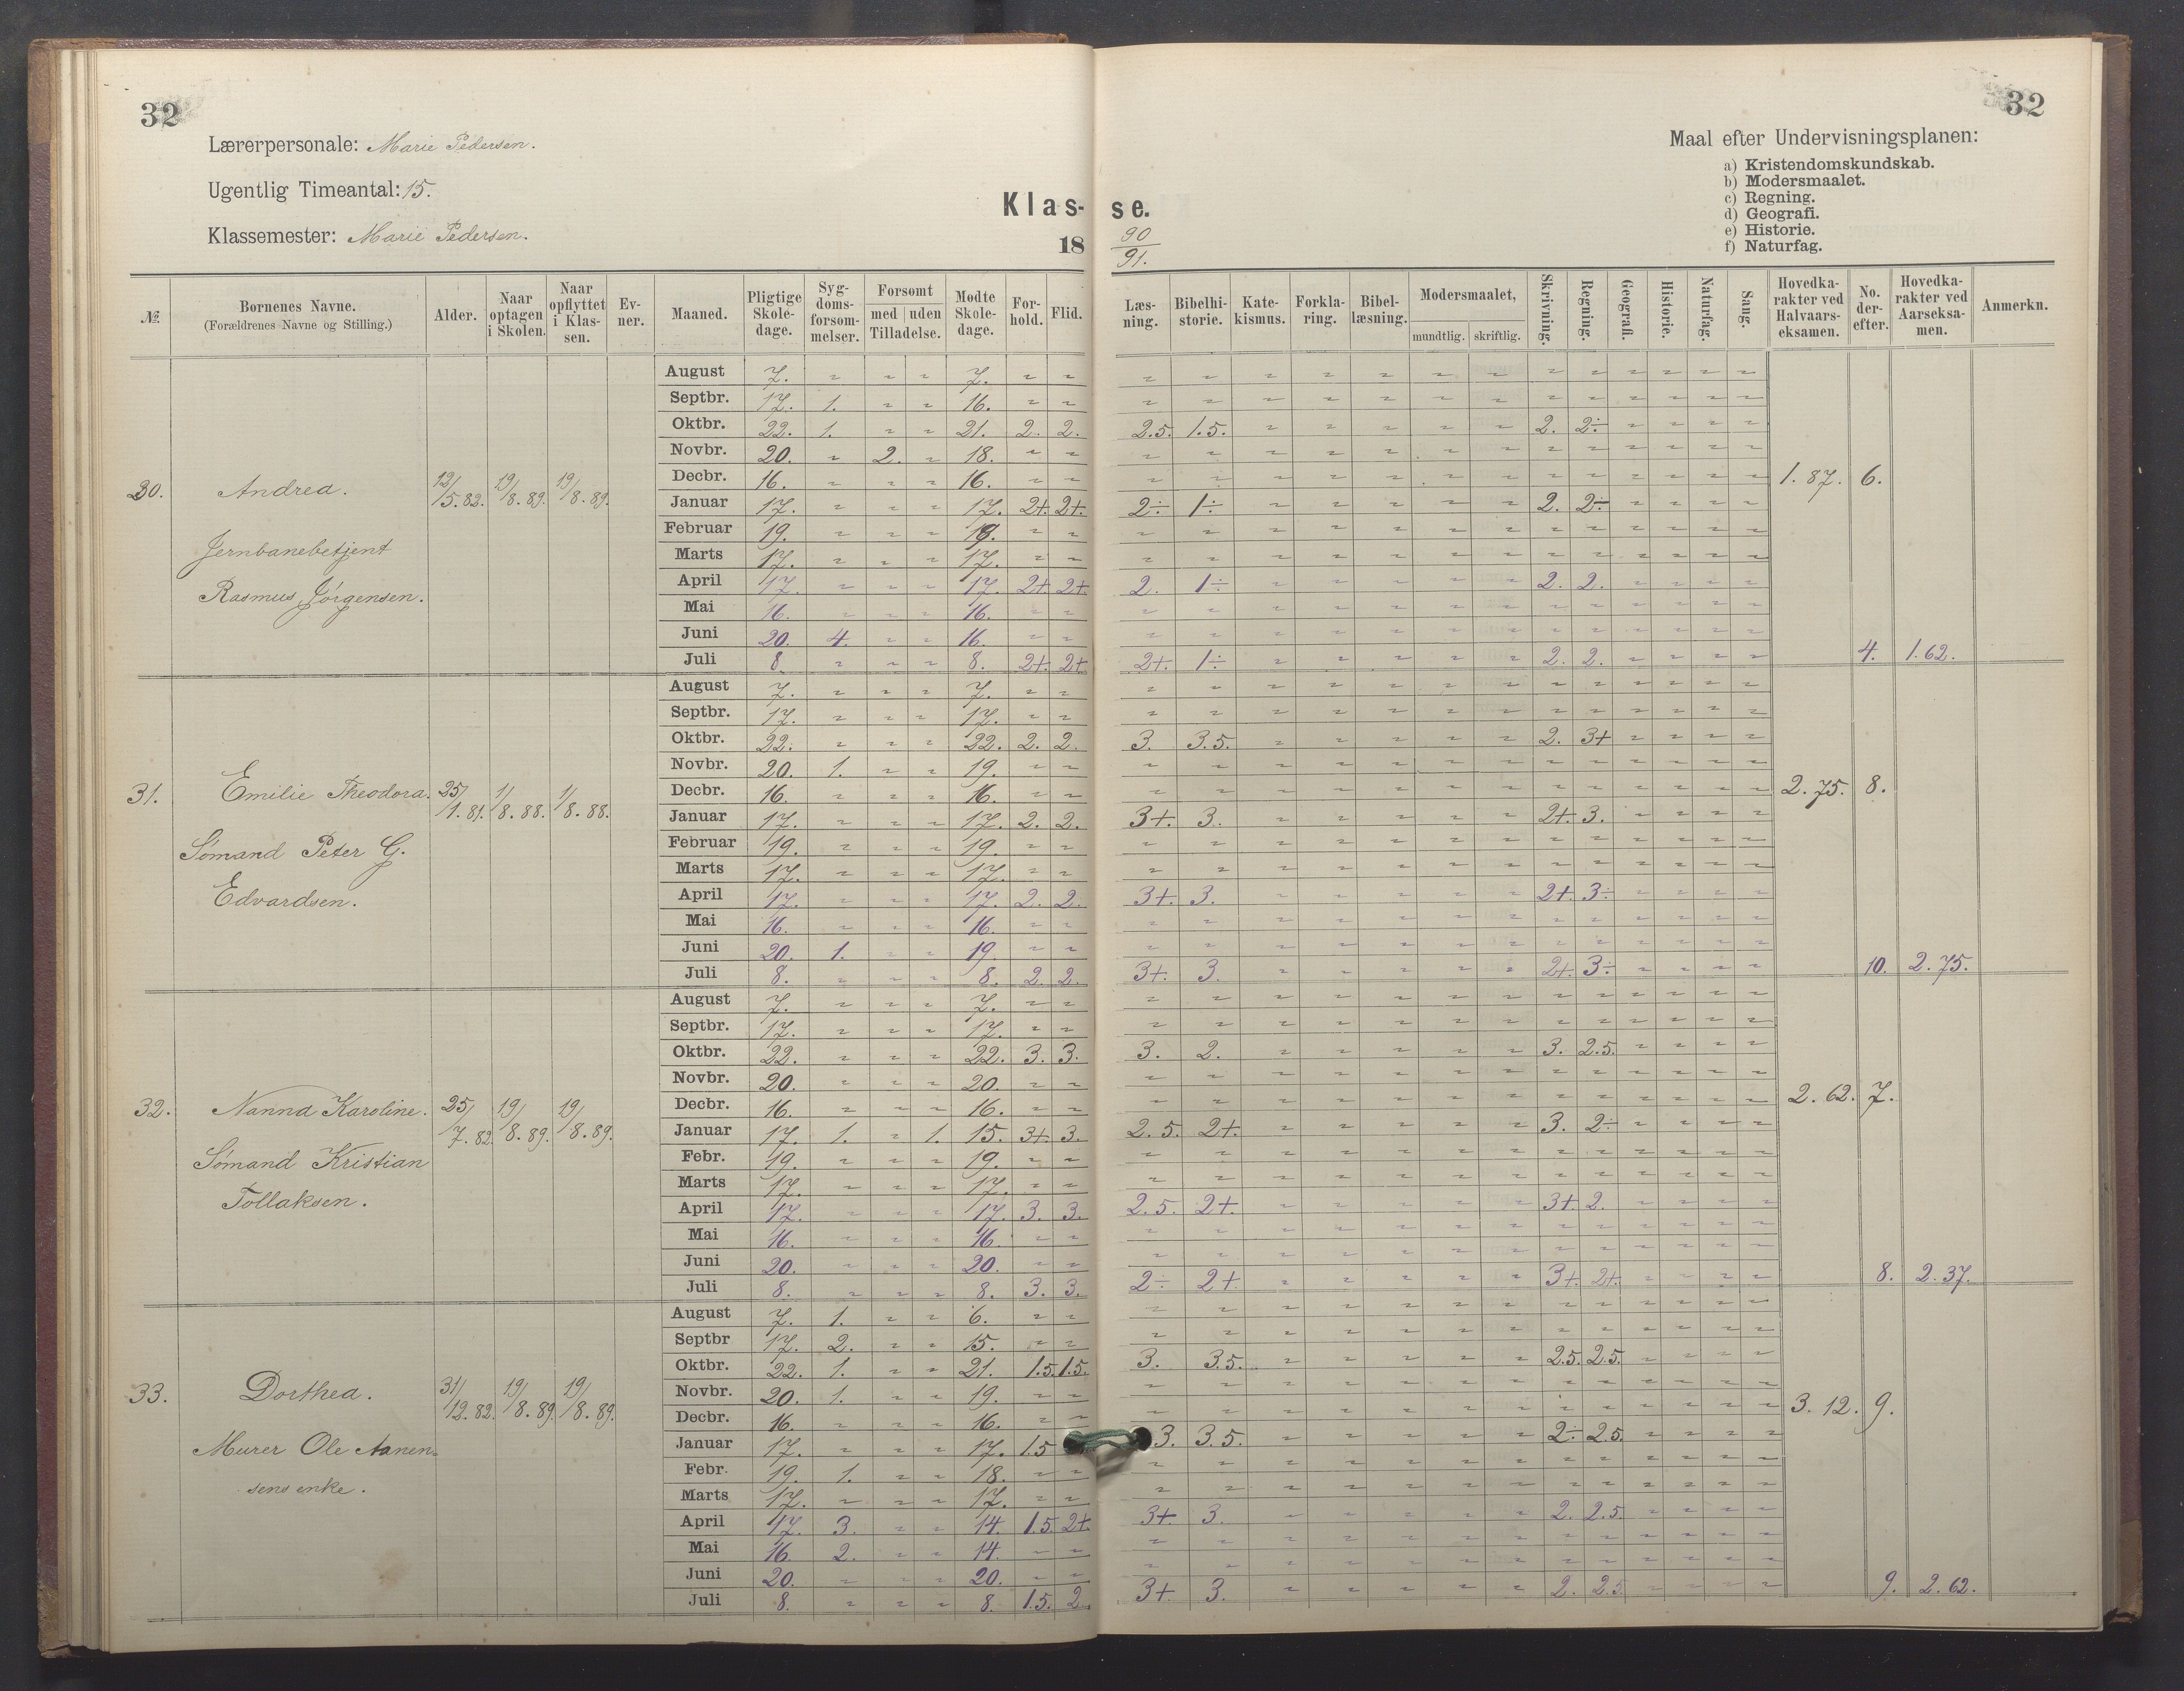 32
32
Lærerpersonale: Marie Pedersen.
Ugentlig Timeantal: 15.
Klassemester: Marie Pedersen.
Klas- se.
18 90/91.
Maal efter Undervisningsplanen:
a) Kristendomskundskab.
b) Modersmaalet.
c) Regning.
d) Geografi.
e) Historie.
f) Naturfag.
№. Børnenes Navne. (Forældrenes Navne og Stilling.) Alder. Naar optagen i Skolen. Naar opflyttet i Klassen. Evner. Maaned. Pligtige Skoledage. Sygdomsforsømmelser. Forsømt med | uden Tilladelse. Mødte Skoledage. Forhold. Flid. Læsning. Bibelhistorie. Katekismus. Forklaring. Bibellæsning. Modersmaalet, mundtlig. skriftlig. Skrivning. Regning. Geografi. Historie. Naturfag. Sang. Hovedkarakter ved Halvaarseksamen. No. derefter. Hovedkarakter ved Aarseksamen. Anmerkn.
30. Andrea. 12/5.82. 19/8.89. 19/8.89. 1.87. 6.
Jernbanebetjent
Rasmus Jørgensen.
August 7. " " " 7. " "
Septbr. 17. 1. " " 16. " "
Oktbr. 22. 1. " " 21. 2. 2. 2.5. 1.5. " " " " " 2. 2÷ " " " "
Novbr. 20. " 2. " 18. " "
Decbr. 16. " " " 16. " "
Januar 17. " " " 17. 2+. 2+. 2÷ 1÷ " " " " " 2. 2÷ " " " "
Februar 19. " " " 19. " "
Marts 17. " " " 17. " "
April 17. " " " 17. 2+. 2+. 2. 1÷ " " " " " 2. 2. " " " "
Mai 16. " " " 16. " "
Juni 20. 4. " " 16. " "
Juli 8. " " " 8. 2+. 2+. 2+. 1÷ " " " " " 2. 2. " " " " 4. 1.62.
31. Emilie Theodora. 25/1.81. 1/8.88. 1/8.88. 2.75. 8.
Sømand Peter G.
Edvardsen.
August 7. " " " 7. " "
Septbr. 17. " " " 17. " "
Oktbr. 22. " " " 22. 2. 2. 3. 3.5. " " " " " 2. 3+ " " " "
Novbr. 20. 1. " " 19. " "
Decbr. 16. " " " 16. " "
Januar 17. " " " 17. 2. 2. 3+. 3. " " " " " 2+. 3. " " " "
Februar 19. " " " 19. " "
Marts 17. " " " 17. " "
April 17. " " " 17. 2. 2. 3+. 3. " " " " " 2+. 3÷ " " " "
Mai 16. " " " 16. " "
Juni 20. 1. " " 19. " "
Juli 8. " " " 8. 2. 2. 3+. 3. " " " " " 2+. 3÷ " " " " 10. 2.75.
32. Nanna Karoline. 25/7.82. 19/8.89. 19/8.89. 2.62. 7.
Sømand Kristian
Tollaksen.
August 7. " " " 7. " "
Septbr. 17. " " " 17. " "
Oktbr. 22. " " " 22. 3. 3. 3. 2. " " " " " 3. 2.5. " " " "
Novbr. 20. " " " 20. " "
Decbr. 16. " " " 16. " "
Januar 17. 1. " 1. 15. 3+. 3. 2.5. 2+. " " " " " 3. 2÷ " " " "
Febr. 19. " " " 19. " "
Marts 17. " " " 17. " "
April 17. " " " 17. 3. 3. 2.5. 2+. " " " " " 3+. 2. " " " "
Mai 16. " " " 16. " "
Juni 20. " " " 20. " "
Juli 8. " " " 8. 3. 3. 2÷ 2+. " " " " " 3+. 2+. " " " " 8. 2.37.
33. Dorthea. 31/12.82. 19/8.89. 19/8.89. 3.12. 9.
Murer Ole Aanen-
sens enke.
August 7. 1. " " 6. " "
Septbr 17. 2. " " 15. " "
Oktbr. 22. 1. " " 21. 1.5. 1.5. 3. 3.5. " " " " " 2.5. 2.5. " " " "
Novbr. 20. 1. " " 19. " "
Decbr. 16. " " " 16. " "
Januar 17. " " " 17. 1.5 3. 3.5. " " " " " 2÷ 2.5. " " " "
Febr. 19. 1. " " 18. " "
Marts 17. " " " 17. " "
April 17. 3. " " 14. 1.5. 2+. 3+. 3. " " " " " 2. 2.5. " " " "
Mai 16. 2. " " 14. " "
Juni 20. " " " 20. " "
Juli 8. " " " 8. 1.5. 2. 3+. 3. " " " " " 2. 2.5. " " " " 9. 2.62.